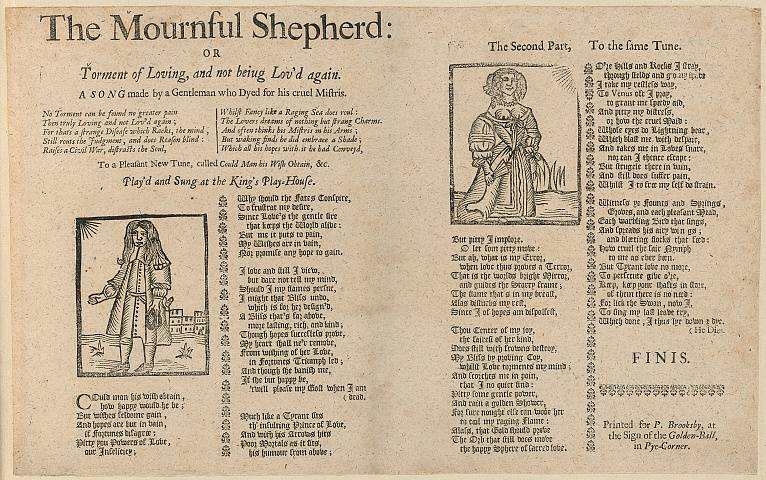 The Mournful Shepherd:
OR
Torment of Loving, and not being Lov'd again.
A SONG made by a Gentleman who Dyed for his cruel Mistris.
No Torment can be found no greater pain
Then truly Loving and not Lov'd again;
For thats a strange Disease which Racks, the mind,
Still rents the Judgment, and does Reason blind:
Raises a Civil War, distracts the Soul,
Whilst Fancy like a Raging Sea does roul:
The Lovers dreams of nothing but strong Charms.
And often thinks his Mistris in his Arms;
But waking finds he did embrace a Shade;
Which all his hopes with it he had Convey'd,
To a Pleasant New Tune, called Could Man his Wish Obtain, &c.
Play'd and Sung at the King's Play-House.
COuld man his wish obtain,
how happy would he be;
But wishes seldome gain,
And hopes are but in vain,
if Fortunes disagree:
Pitty you Powers of Love,
our Infelicity;
Why should the Fates Conspire,
To frustrat my desire,
Since Love's the gentle fire
that keeps the World alive:
But me it puts to pain,
My Wishes are in vain,
Nor promise any hope to gain.
I love and still I view,
but dare not tell my mind,
Should I my flames persue,
I might that Bliss undo,
which is for her design'd,
A Bliss that's far above,
more lasting, rich, and kind;
Though hopes successless prove,
My heart shall ne'r remove,
From wishing of her Love,
in Fortunes Triumph led;
And though she banish me,
If she but happy be,
'twill please my Gost when I am
(dead.
Much like a Tyrant sits
th' insulting Prince of Love,
And with his Arrows hits
Poor Mortals as it fits,
his humour from above;
The Second Part, To the same Tune.
But pitty I implore.
O let som pitty move:
But ah, what is my Error,
when love thus proves a Terror,
That is the worlds bright Mirror,
and guides the Starry frame;
The flame that is in my breast,
Alas disturbs my rest,
Since I of hopes am dispossest,
Thou Center of my joy,
the fairest of her kind,
Does still with frowns destroy,
My Bliss by proving Coy,
whilst Love torments my mind;
And scorches me in pain,
that I no quiet find:
Pitty some gentle power,
And rain a golden Shower,
For sure nought else can wooe her
to cul my raging Flame:
Alass, that Gold should prove
The Orb that still does move
the happy Sphere of sacred love.
O're Hills and Rocks I stray,
though fields and
I take my restless way,
To Venus oft I pray,
to grant me speedy aid,
And pitty my distress,
or how the cruel Maid:
Whose eyes do Lightning bear,
Which blast me with despair,
And takes me in Loves snare,
nor can I thence escape:
But strugele there in vain,
And still does suffer pain,
Whilst I to free my self do strain.
Witness ye Founts and Springs,
Groves, and each pleasant Mead,
Each warbling Bird that sings,
And spreads his airy wings;
and bleeting flocks that feed:
How cruel the fair Nymph
to me as ever been.
But Tyrant love no more,
To persecute give o're,
Keep, keep your shafts in store,
of them there is no need:
For like the Swan, now I,
To sing my last leave try,
Which done, I thus lye down & dye.
(He Dies.
FINIS.
Printed for P. Brooksby, at
the Sign of the Golden-Ball,
in Pye-Corner.